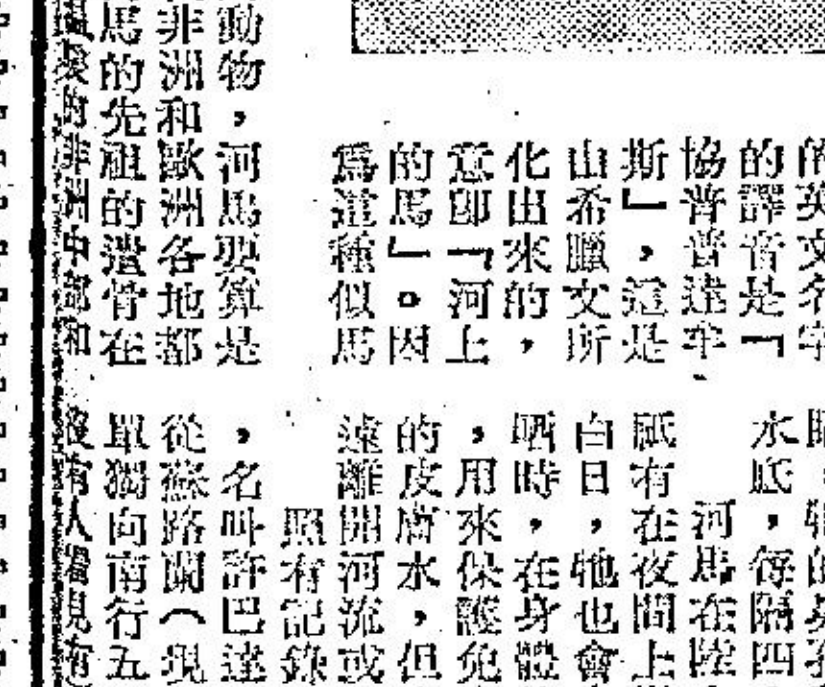 的英文名字
的譯音是「
協普普達牢
斯」,這是
山希臘文所
化出來的,
意即「河上
的馬」。因
爲這種似馬
動物,河馬要算是
非洲和歐洲各地都
馬的先祖的遺骨在
的非洲中部和
的鼻孔
水底,每隔四
河馬在陸
祇有在夜間上
白日,牠也會
晒時,在身體
,用來保護免
的皮膚水,但
遠離開河流或
照有記錄
,名叫許巴達
從蘇路蘭(現
單獨向南行五
沒有人看見有